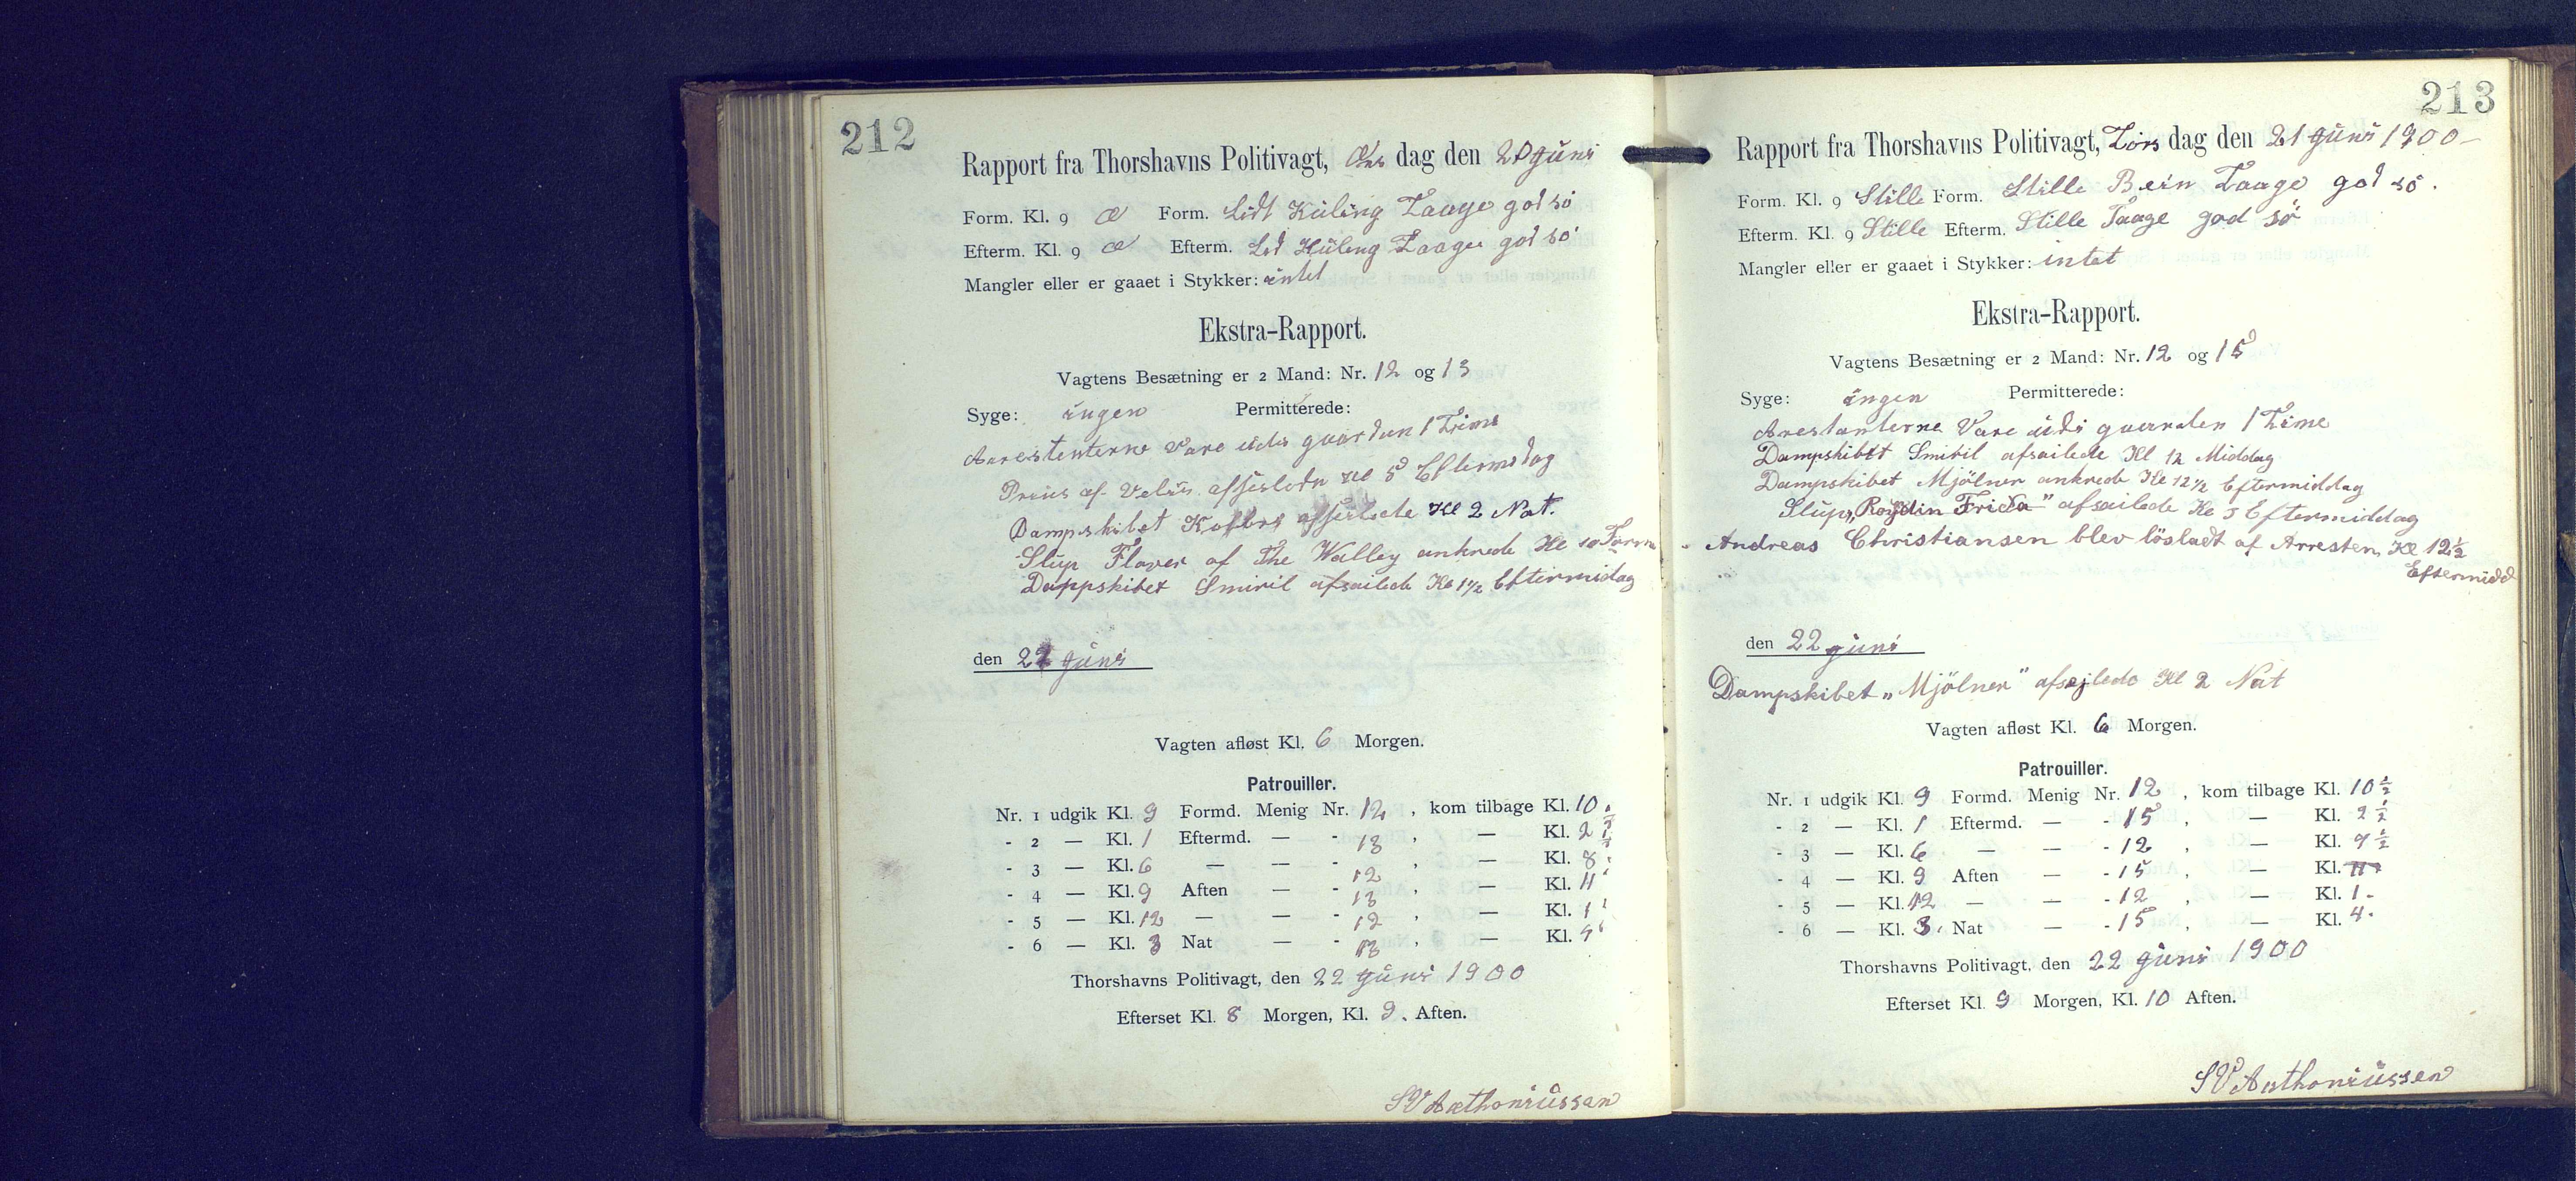 212
Rapport fra Thorshavns Politivagt, Ons dag den 20 Juni
Form. Kl. 9 Œ Form. Lidt Küling Taage god sö
Efterm. Kl. 9 Œ Efterm. Lid Küling Taage god sö
Mangler eller er gaaet i Stykker: intet
Ekstra-Rapport.
Vagtens Besætning er 2 Mand: Nr. 12 og 13
Syge: ingen Permitterede:
Arrestenterne Vare udi gaarden 1 Time
Prins af afseslede Kl 5 Eftermidag
Dampskibet afseilede Kl 2 Nat.
Slup Flaver of The Walley ankrede Kl 10 Form
Dappskibet Smiril afsailede Kl 1 1/2 Eftermidag
den 22 Juni
Vagten afløst Kl. 6 Morgen.
Patrouiller.
Nr. 1 udgik Kl. 9 Formd. Menig Nr. 12 , kom tilbage Kl. 10
- 2 — Kl. 1 Eftermd. — - 13 , — Kl. 2 1/2
- 3 — Kl. 6 — — - 12 , — Kl. 8
- 4 — Kl. 9 Aften — - 13 , — Kl. 11
- 5 — Kl. 12 — — - 12 , — Kl. 1
- 6 — Kl. 3 Nat — - 13 , — Kl. 4
Thorshavns Politivagt, den 22 Juni 1900
Efterset Kl. 8 Morgen, Kl. 9. Aften.
SV Anthoniüssen
213
Rapport fra Thorshavns Politivagt, Tors dag den 21 Juni 1900 –
Form. Kl. 9 Stille Form. Stille Rein Taage god sö.
Efterm. Kl. 9 Stille Efterm. Stille Taage god sö
Mangler eller er gaaet i Stykker: intet
Ekstra-Rapport.
Vagtens Besætning er 2 Mand: Nr. 12 og 15
Syge: ingen Permitterede:
Arestanterne Vare udi gaarden 1 Time
Dampskibet Smiril afsailede Kl 12 Middag
Dampskibet Mjölner ankrede Kl 12 1/2 Eftermiddag
Slup „ Frida" afsailede Kl 5 Eftermiddag
Andreas Christiansen blev lösladt af Arresten Kl 12 1/2
Eftermidd
den 22 Juni
Dampskibet „Mjölner" afsejlede Kl 2 Nat
Vagten afløst Kl. 6 Morgen.
Patrouiller.
Nr. 1 udgik Kl. 9 Formd. Menig Nr. 12 , kom tilbage Kl. 10 1/2
- 2 — Kl. 1 Eftermd. — - 15 , — Kl. 2 1/2
- 3 — Kl. 6 — — - 12 , — Kl. 7 1/2
- 4 — Kl. 9 Aften — - 15 , — Kl. 11
- 5 — Kl. 12 — — - 12 , — Kl. 1 -
- 6 — Kl. 3. Nat — - 15 , — Kl. 4.
Thorshavns Politivagt, den 22 Juni 1900
Efterset Kl. 9 Morgen, Kl. 10 Aften.
SV Anthoniüssen